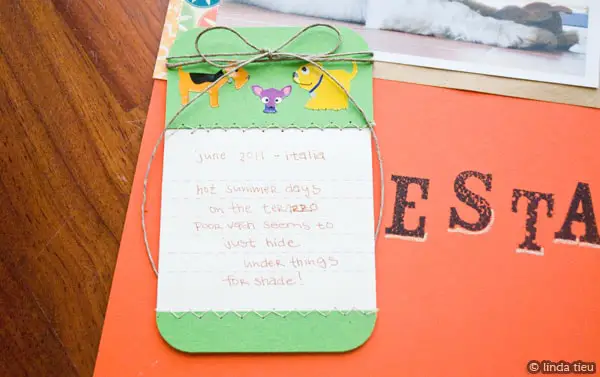 june 2011 - italia
hot summer days
on the
poor seems to
just hide
under things
for shade!
ESTA
© linda tieu